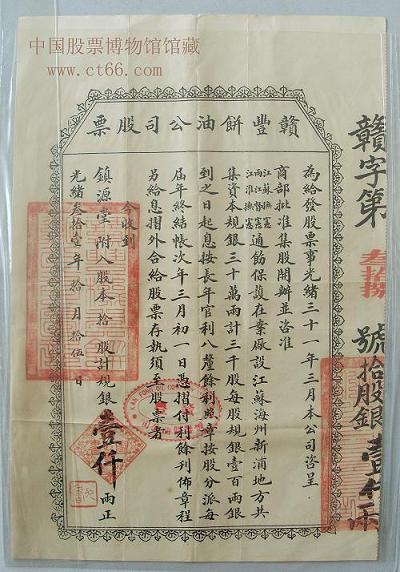 中国股票博物馆馆藏
www.ct66.com
贛豐餅油公司股票
贛字第叁拾捌號拾股銀壹仟兩
為給發股票事光緒三十一年三月本公司咨呈
商部批准集股開辦並咨准
江蘇撫憲
兩江督憲
江淮撫憲
飭保護在案廠設江蘇海州新浦地方共
集資本規銀三十萬兩計三千股每股規銀壹百兩銀
到之日起息按長年官利八釐餘利照章按股分派每
屆年終結帳次年三月初一日憑摺付利餘利佈章程
另給息摺外合給股票存執須至股票者
今收到
鎮源堂附入股本拾股計規銀壹仟兩正
光緒叁拾壹年拾月拾伍日